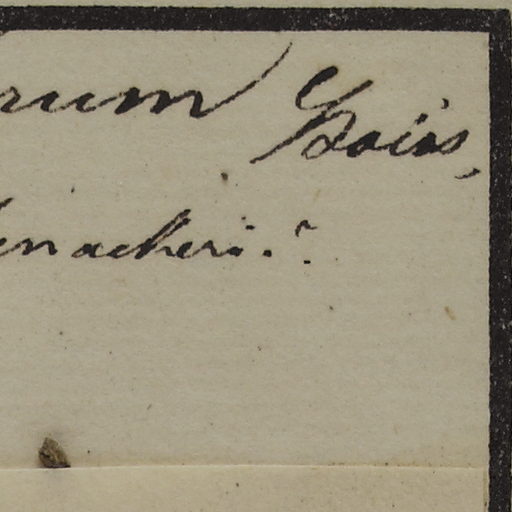 rum Boiss,
enackeri.?